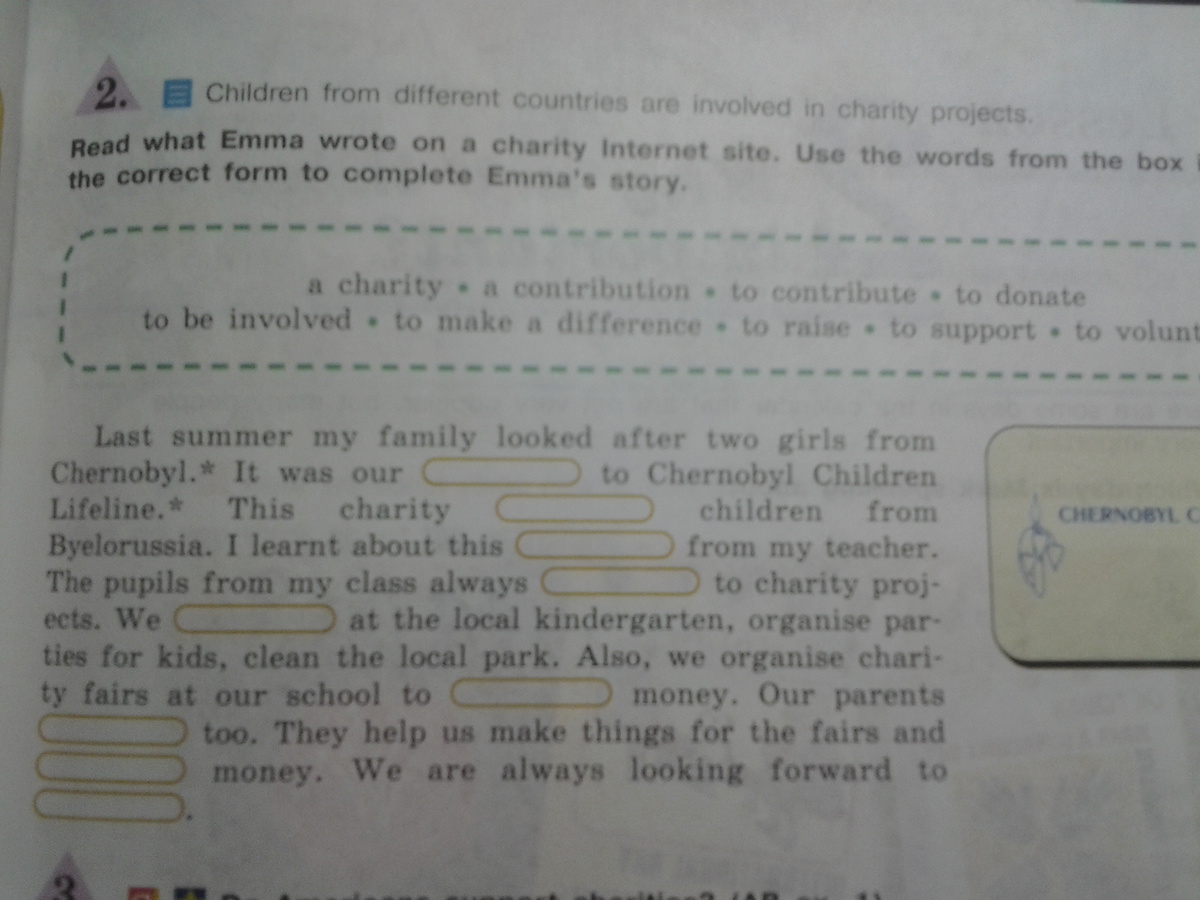 2. Children from different countries are involved in charity projects.
Read what Emma wrote on a charity Internet site. Use the words from the box
the correct form to complete Emma's story.
a charity • a contribution • to contribute • to donate
to be involved • to make a difference • to raise • to support • to volunt
Last summer my family looked after two girls from
Chernobyl.* It was our to Chernobyl Children
Lifeline.* This charity children from
Byelorussia. I learnt about this from my teacher.
The pupils from my class always to charity proj-
ects. We at the local kindergarten, organise par-
ties for kids, clean the local park. Also, we organise chari-
ty fairs at our school to money. Our parents
too. They help us make things for the fairs and
money. We are always looking forward to
.
CHERNOBYL C
3
Do Americans support charities? (AB ex. 1)